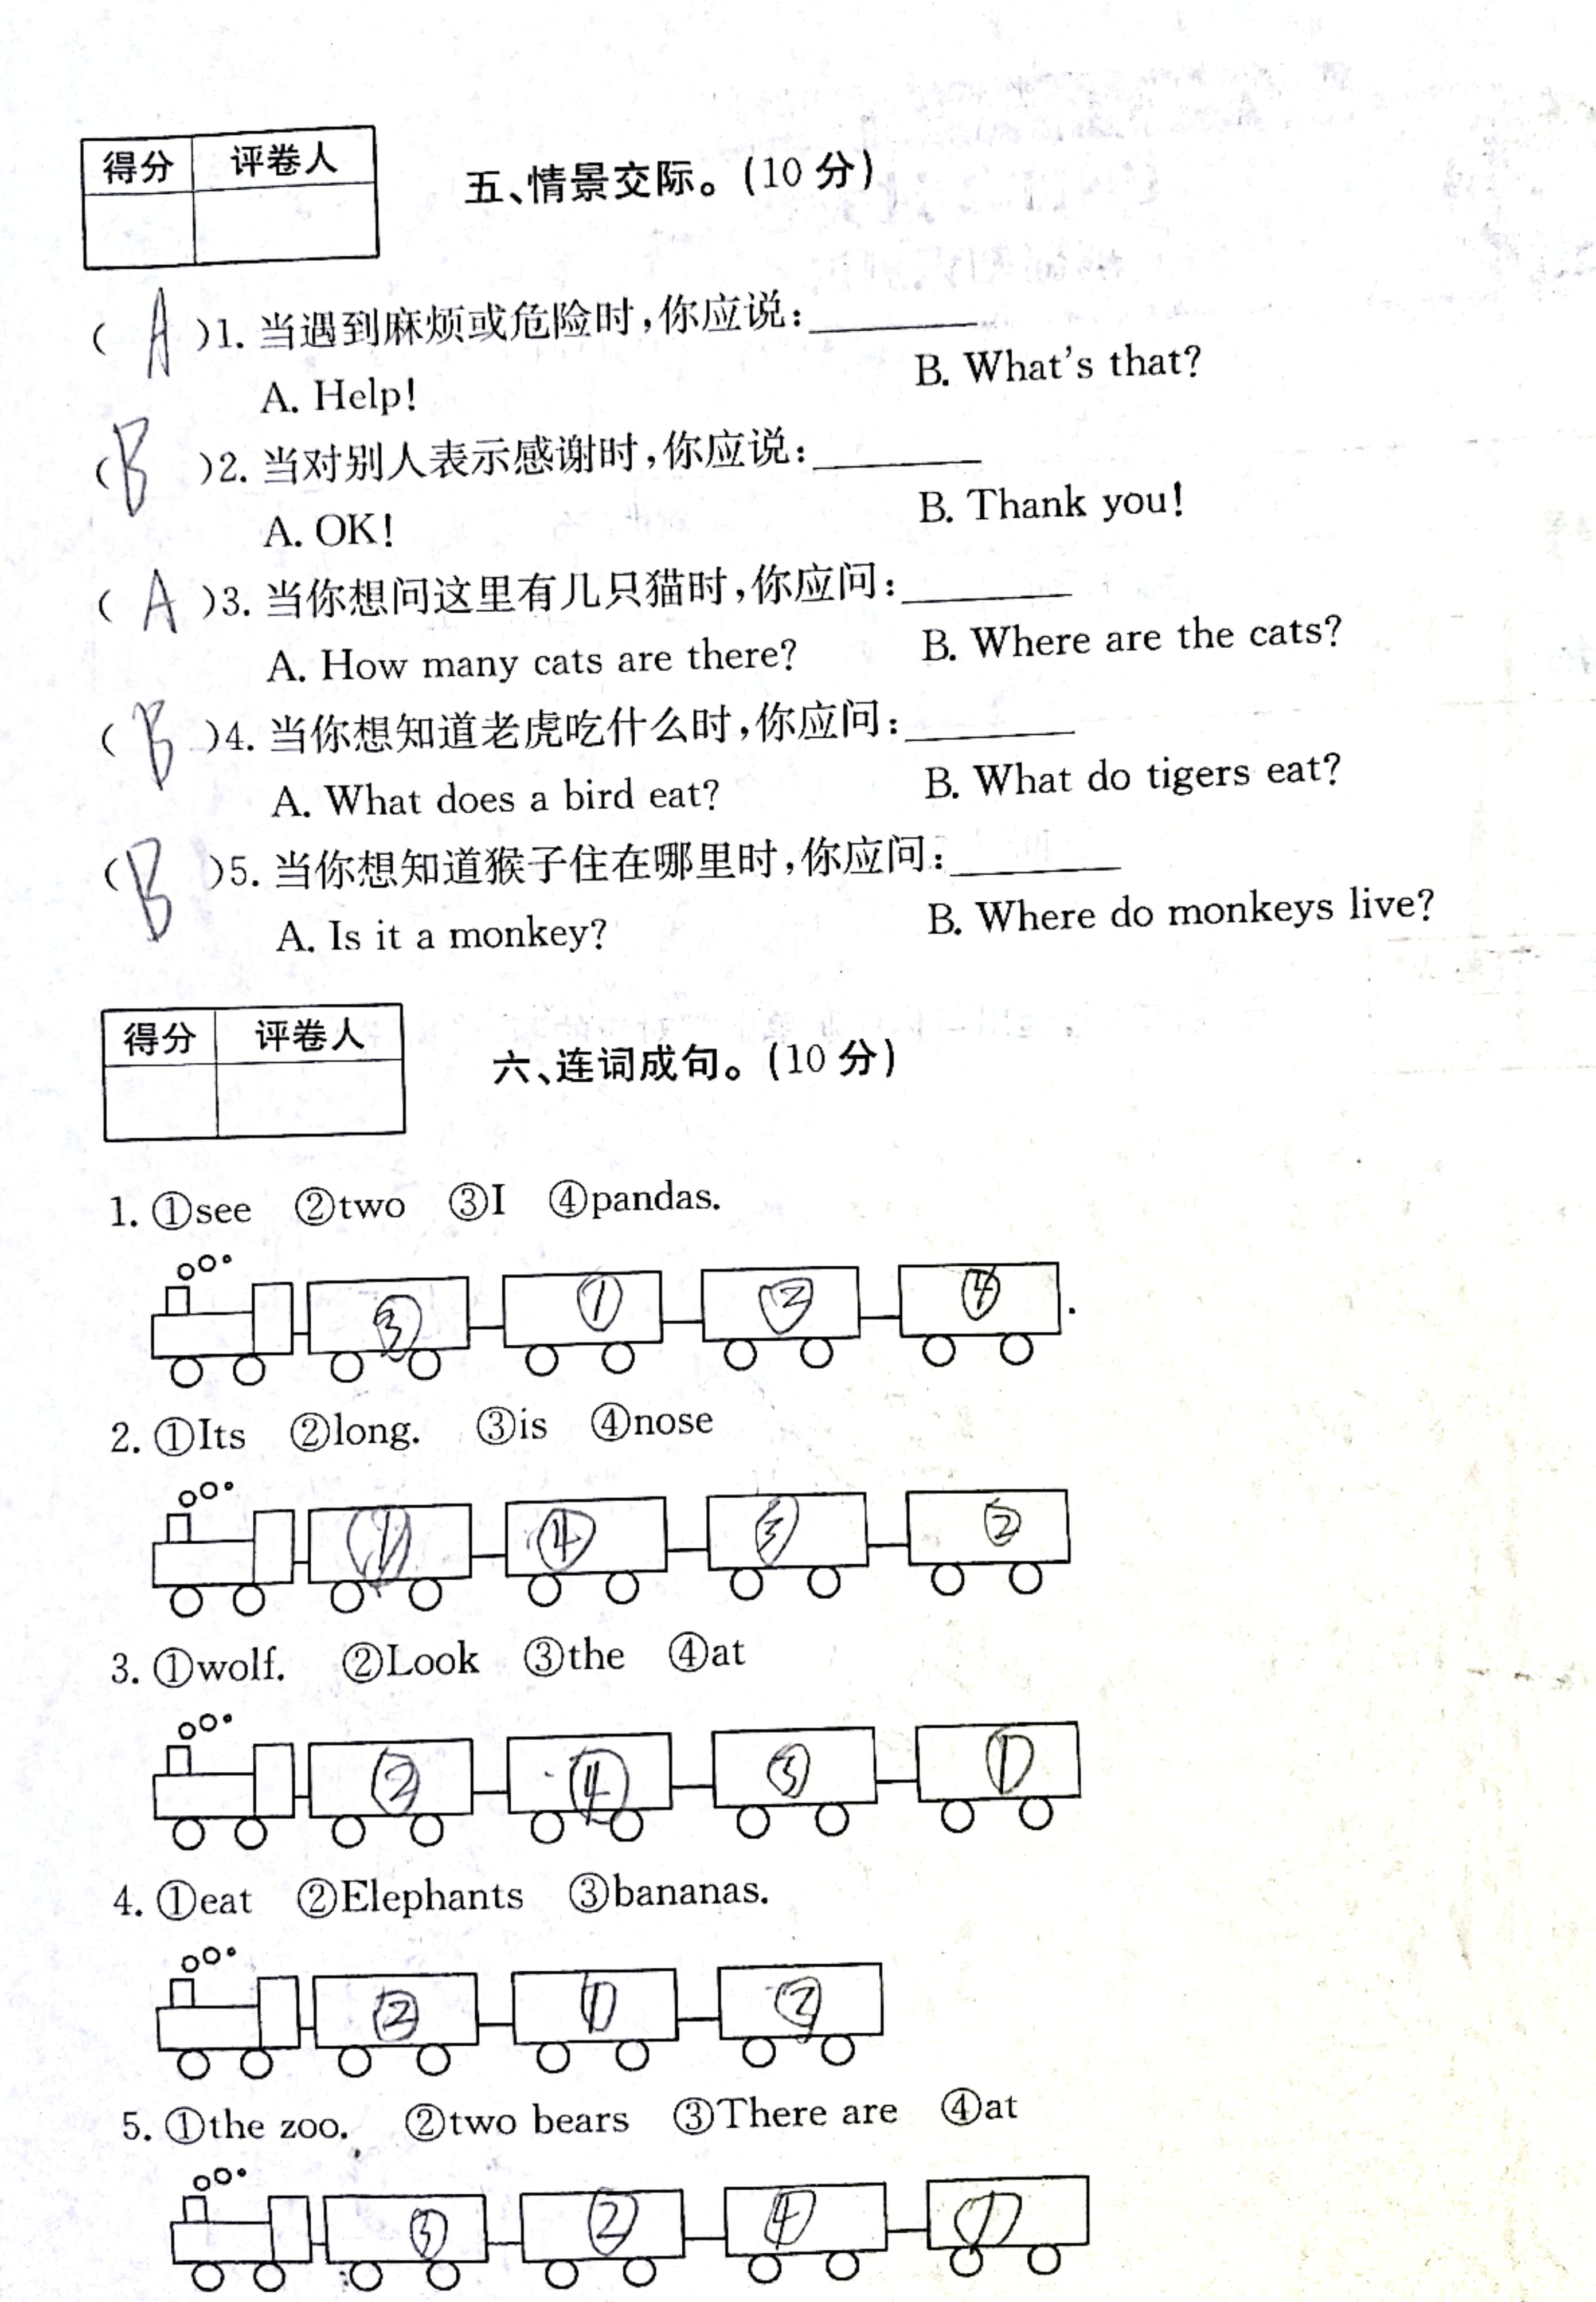 得分 评卷人
五、情景交际。(10 分)
( A )1. 当遇到麻烦或危险时,你应说:________
A. Help! B. What's that?
( B )2. 当对别人表示感谢时,你应说:________
A. OK! B. Thank you!
( A )3. 当你想问这里有几只猫时,你应问:________
A. How many cats are there? B. Where are the cats?
( B )4. 当你想知道老虎吃什么时,你应问:________
A. What does a bird eat? B. What do tigers eat?
( B )5. 当你想知道猴子住在哪里时,你应问:________
A. Is it a monkey? B. Where do monkeys live?
得分 评卷人
六、连词成句。(10 分)
1. ①see ②two ③I ④pandas.
③ ① ② ④ .
2. ①Its ②long. ③is ④nose
① ④ ③ ②
3. ①wolf. ②Look ③the ④at
② ④ ③ ①
4. ①eat ②Elephants ③bananas.
② ①
5. ①the zoo. ②two bears ③There are ④at
③ ② ④ ①